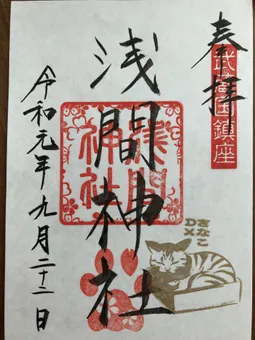 奉拝
武蔵国鎮座
浅間神社
浅間神社
令和元年九月二十二日
きなこ
DX